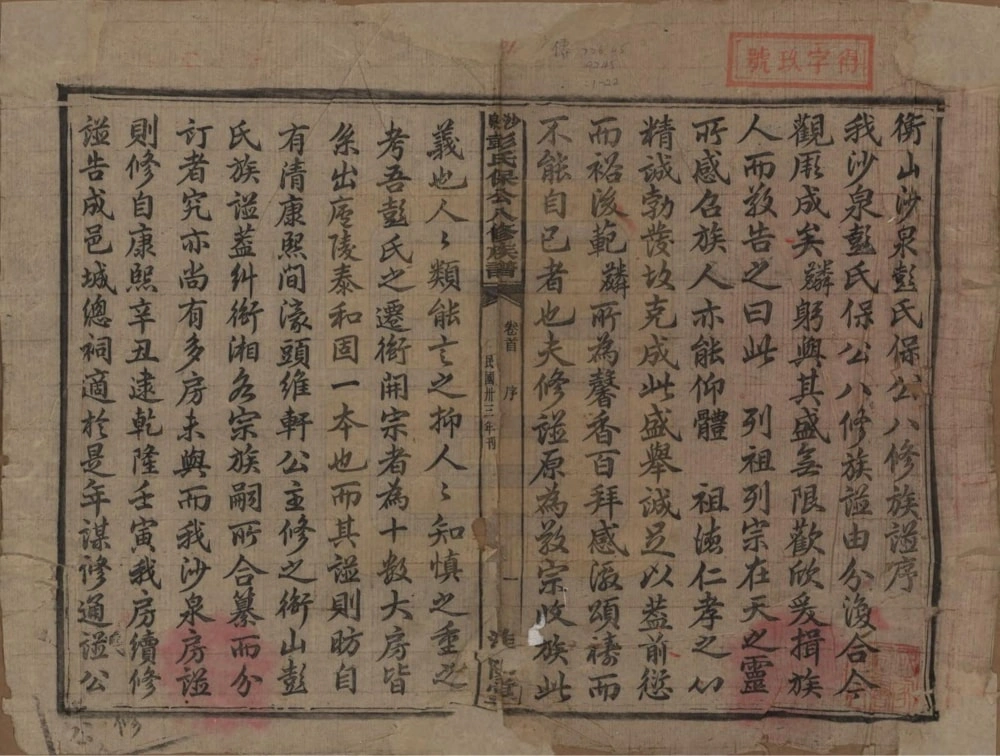 衡山沙泉彭氏保公八修族諡序
我沙泉彭氏保公八修族諡由分復合今
觀厥成矣麟躬與其盛無限歡欣爰揖族
人而敬告之曰此 列祖列宗在天之靈
所感召族人亦能仰體 祖德仁孝之心
精誠勃發故克成此盛舉誠足以蓋前愆
而裕後範麟所為馨香百拜感激頌禱而
不能自已者也夫修諡原為敬宗收族此
沙泉彭氏保公八修族譜
卷首 序
民國卅三年刊
一
義也人〻類能言之抑人〻知慎之重之
考吾彭氏之遷衡開宗者為十數大房皆
系出庐陵泰和固一本也而其諡則昉自
有清康熙間濠頭維軒公主修之衡山彭
氏族諡蓋糾衡湘各宗族嗣所合纂而分
訂者究亦尚有多房未與而我沙泉房諡
則修自康熙辛丑逮乾隆壬寅我房續修
諡告成邑城總祠適於是年謀修通諡公
得字玖號